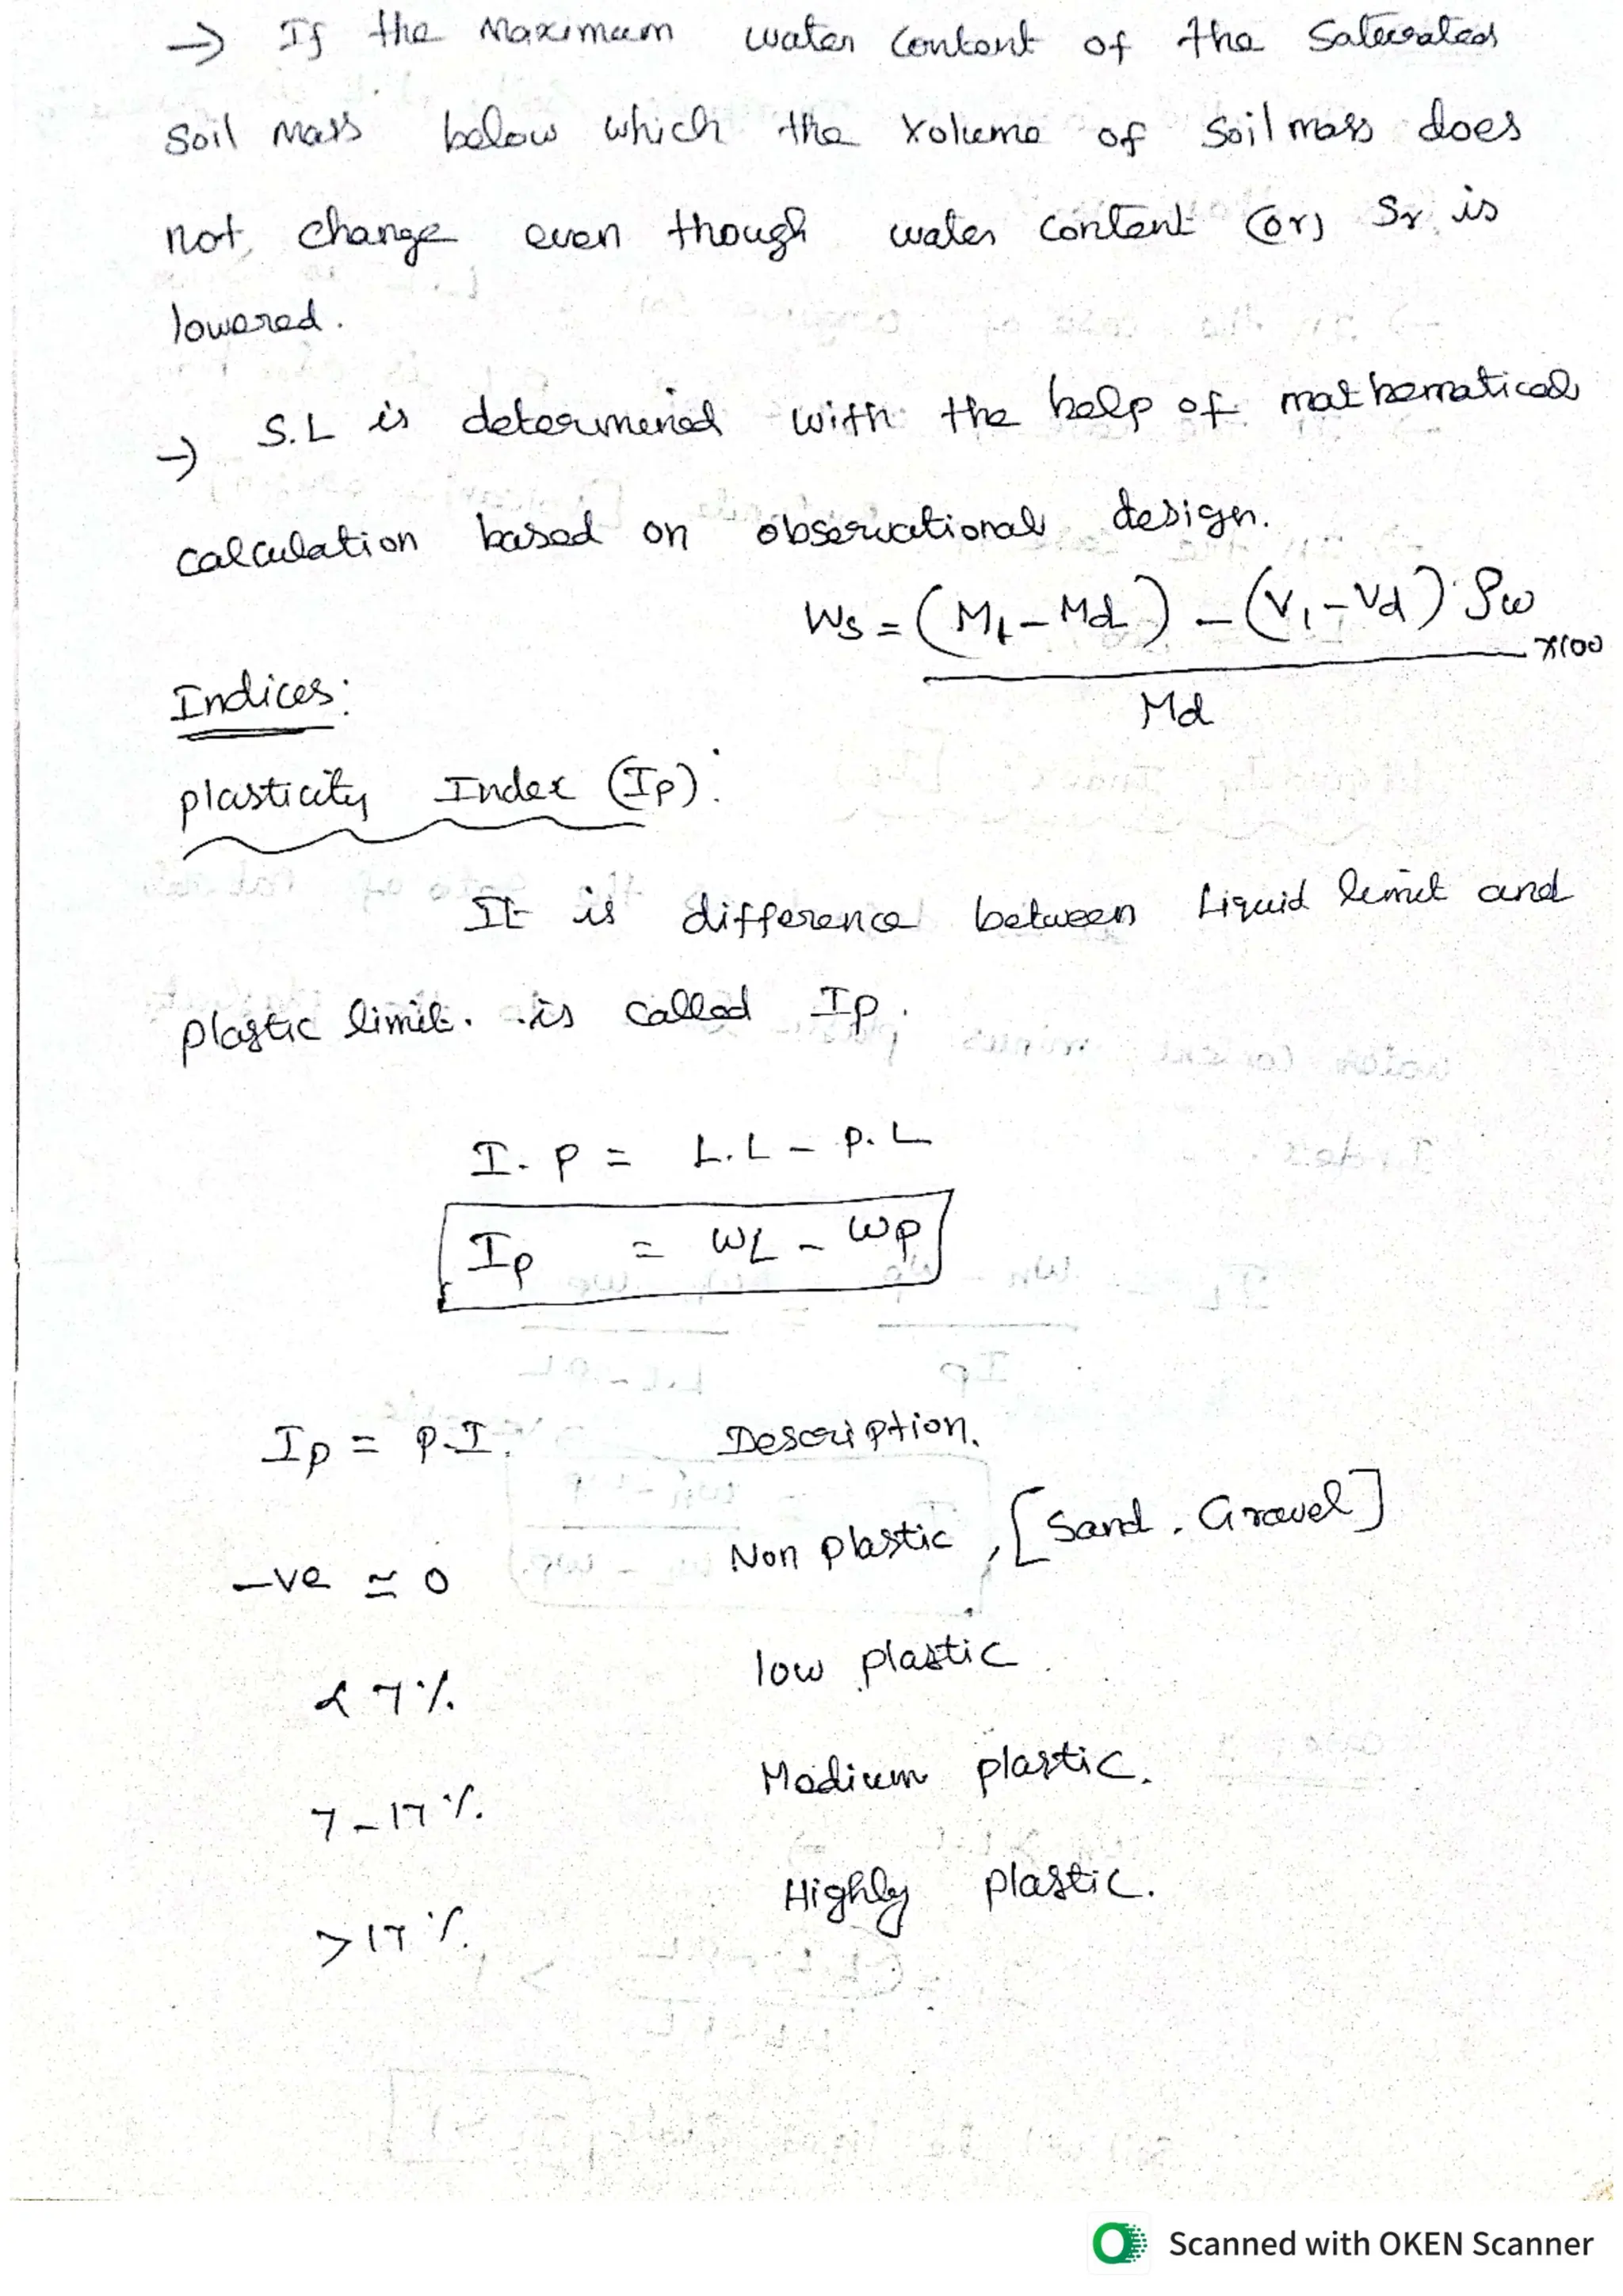 → If the Maximum water content of the Saturated
Soil Mass below which the Volume of Soil mass does
not change even though water content (or) Sr is
lowered.
→ S.L is determined with the help of mathematical
calculation based on observational design.
Ws = (M1 - Md) - (V1 - Vd) ρw
x100
Md
Indices:
plasticity Index (Ip):
It is difference between Liquid limit and
plastic limit. is called Ip.
I.P = L.L - P.L
Ip = WL - Wp
Ip = P.I. Description.
-ve ≃ 0 Non plastic, [Sand, Gravel]
< 7% low plastic.
7-17% Medium plastic.
>17% Highly plastic.
Scanned with OKEN Scanner